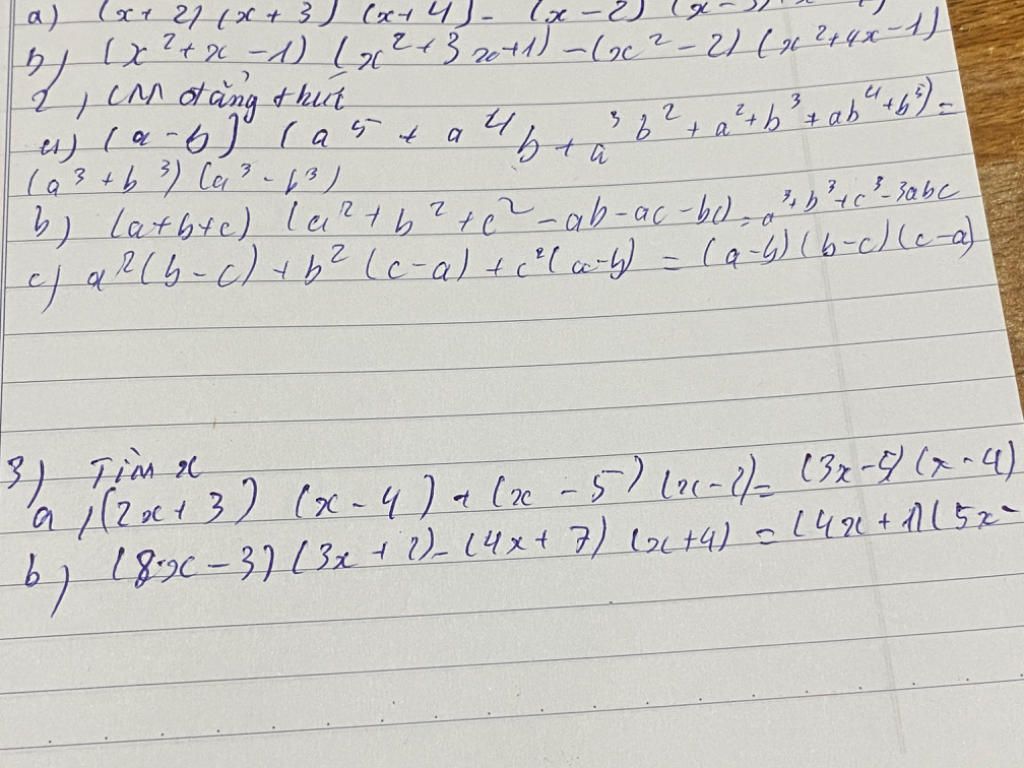 a) (x + 2) (x + 3) (x + 4) - (x - 2) (x - 3)
b) (x² + x - 1) (x² + 3x + 1) - (x² - 2) (x² + 4x - 1)
2, CM đẳng thức
a) (a - b) (a⁵ + a⁴b + a³b² + a² + b³ + ab⁴ + b⁵) =
(a³ + b³) (a³ - b³)
b) (a+b+c) (a² + b² + c² - ab - ac - bc) = a³ + b³ + c³ - 3abc
c) a²(b - c) + b² (c - a) + c² (a - b) = (a - b) (b - c) (c - a)
3) Tìm x
a, (2x + 3) (x - 4) + (x - 5) (x - 2) = (3x - 5) (x - 4)
b) (8x - 3) (3x + 2) - (4x + 7) (x + 4) = (4x + 1) (5x -